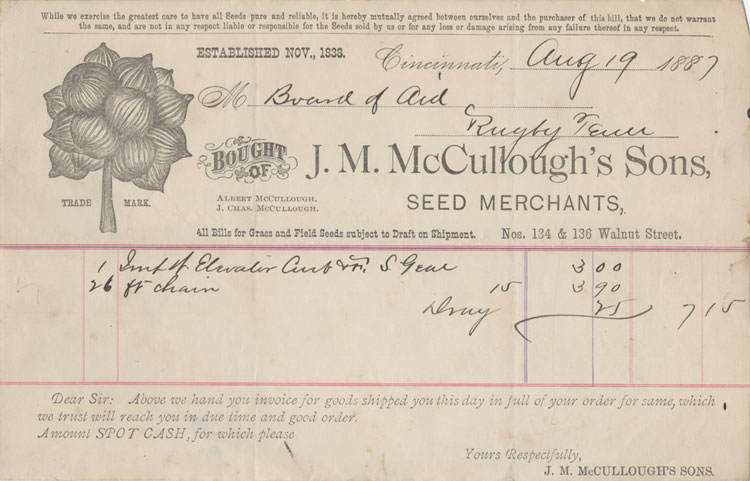 While we exercise the greatest care to have all Seeds pure and reliable, it is hereby mutually agreed between ourselves and the purchaser of this bill, that we do not warrant
the same, and are not in any respect liable or responsible for the Seeds sold by us or for any loss or damage arising from any failure thereof in any respect.
ESTABLISHED NOV., 1838.
Cincinnati, Aug 19 1887
M Board of Aid
Rugby Tenn
BOUGHT OF
J. M. McCullough's Sons,
ALBERT McCULLOUGH.
J. CHAS. McCULLOUGH.
SEED MERCHANTS,
TRADE MARK.
All Bills for Grass and Field Seeds subject to Draft on Shipment. Nos. 134 & 136 Walnut Street.
1 Elevator Curb S Gear 3 00
26 ft chain 15 3 90
Dray 25 7 15
Dear Sir: Above we hand you invoice for goods shipped you this day in full of your order for same, which
we trust will reach you in due time and good order.
Amount SPOT CASH, for which please
Yours Respectfully,
J. M. McCULLOUGH'S SONS.